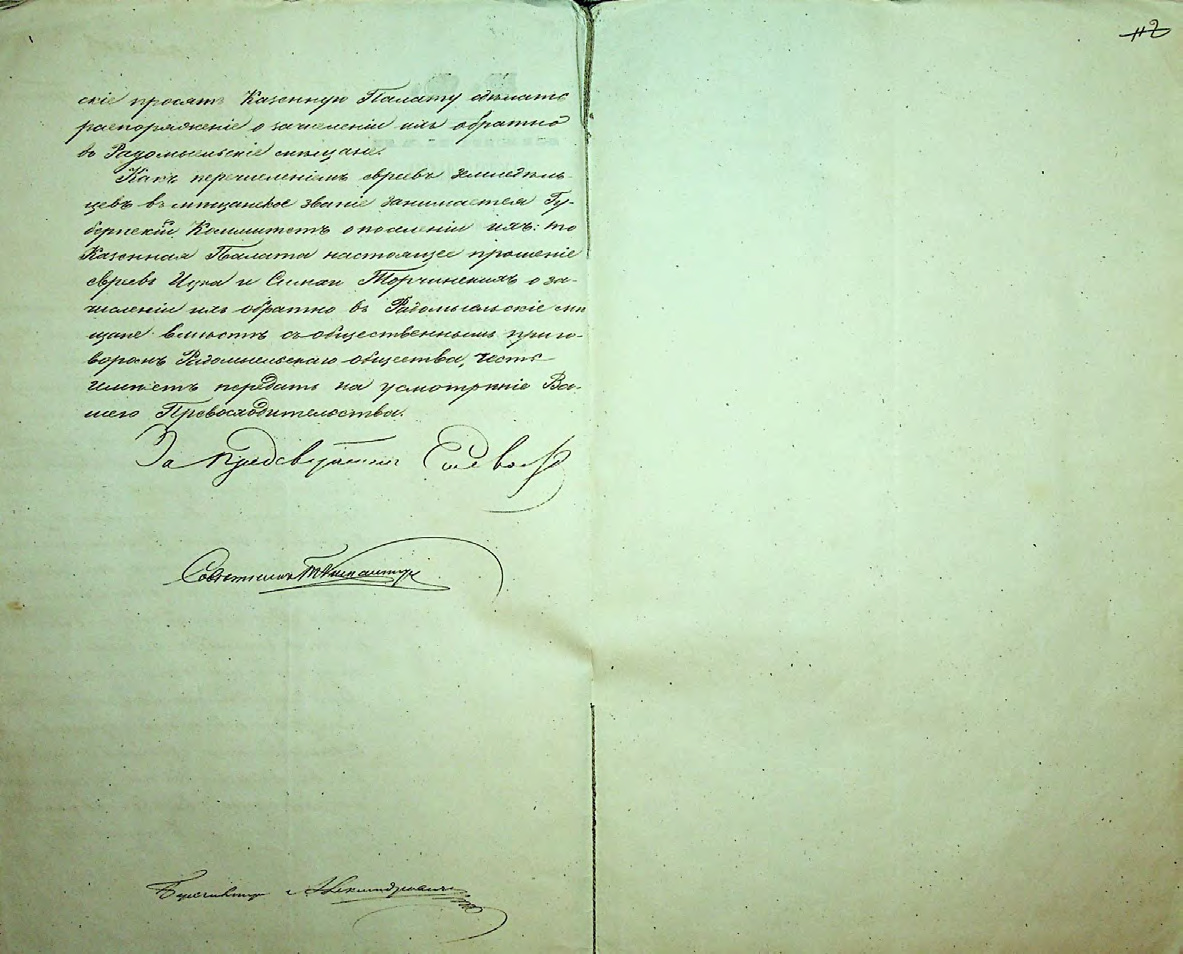 скіе просятъ Казенную Палату сдѣлать
распоряженіе о зачисленіи ихъ обратно
въ Радомысльскіе мѣщане.
Какъ перечисленіемъ евреевъ земледѣль-
цевъ въ мѣщанское званіе занимается Гу-
бернскій Комитетъ о поселеніи ихъ: то
Казенная Палата настоящее прошеніе
евреевъ Ицка и Симхи Торчинскихъ о за-
численіи ихъ обратно въ Радомысльскіе мѣ
щане вмѣстѣ съ общественнымъ приго-
воромъ Радомысльскаго общества, честь
имѣетъ передать на усмотрѣніе Ва-
шего Превосходительства.
За Предсѣдателя
Совѣтникъ
Бухгалтеръ